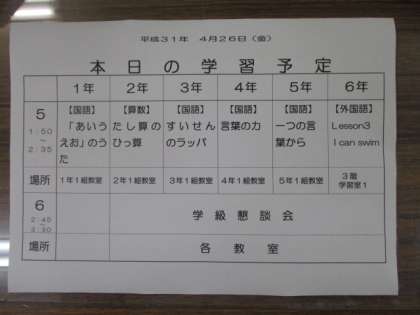 平成３１年　４月２６日（金）
本日の学習予定
１年　２年　３年　４年　５年　６年
５
１：５０
～
２：３５
【国語】
「あいう
えお」のう
た
【算数】
たし算の
ひっ算
【国語】
すいせん
のラッパ
【国語】
言葉の力
【国語】
一つの言
葉から
【外国語】
Lesson3
I can swim
場所　１年１組教室　２年１組教室　３年１組教室　４年１組教室　５年１組教室　３階
学習室１
６
２：４５
３：３０
学級懇談会
場所　各教室